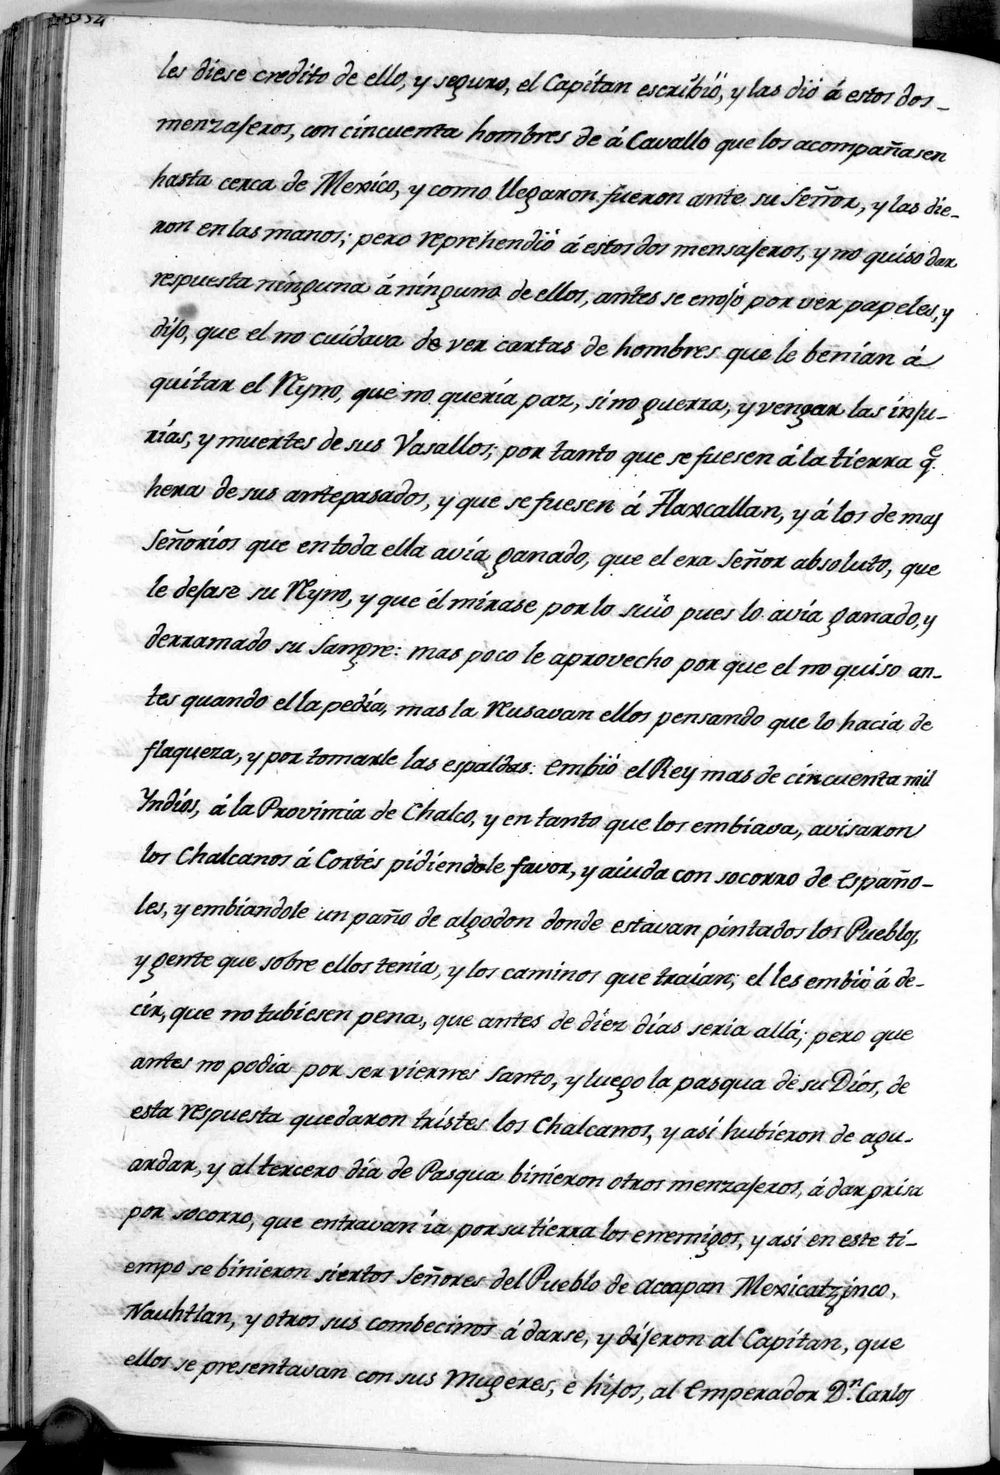 les diese credito de ello, y seguro, el Capitan escribiò, y las diò á estos dos
menzajeros, con cincuenta hombres de á Cavallo que los acompañasen
hasta cerca de Mexico, y como llegaron fueron ante su Señor, y las die-
ron en las manos; pero reprehendiò á estos dos mensajeros, y no quiso dar
respuesta ninguna á ninguno de ellos, antes se enojò por ver papeles, y
dijo, que el no cuidava de ver cartas de hombres que le benian á
quitar el Ryno, que no queria paz, sino guerra, y vengar las inju-
rias, y muertes de sus Vasallos; por tanto que se fuesen á la tierra q.e
hera de sus antepasados, y que se fuesen á Tlaxcallan, y á los de mas
Señoríos que en toda ella avia ganado, que el era Señor absoluto, que
le dejase su Ryno, y que él mirase por lo suio pues lo avia ganado, y
derramado su Sangre: mas poco le aprovecho por que el no quiso an-
tes quando el la pedia, mas la Rusavan ellos pensando que lo hacia de
flaqueza, y por tomarle las espaldas: embiò el Rey mas de cincuenta mil
Yndios, á la Provincia de Chalco, y en tanto que los embiava, avisaron
los Chalcanos á Cortés pidiendole favor, y aiuda con socorro de españo-
les, y embiandole un paño de algodon donde estavan pintados los Pueblos,
y gente que sobre ellos tenia, y los caminos que traian; el les embiò á de-
cir, que no tubiesen pena, que antes de diez dias seria allá; pero que
antes no podia por ser viernes Santo, y luego la pasqua de su Dios, de
esta respuesta quedaron tristes los Chalcanos, y asi hubieron de agu-
ardar, y al tercero dia de Pasqua binieron otros menzajeros, á dar prisa
por socorro, que entravan ia por su tierra los enemigos, y asi en este ti-
empo se binieron siertos Señores del Pueblo de Acapan Mexicatzinco,
Nauhtlan, y otros sus combecinos á darse, y dijeron al Capitan, que
ellos se presentavan con sus Mugeres, e hijos, al Emperador D.n Carlos